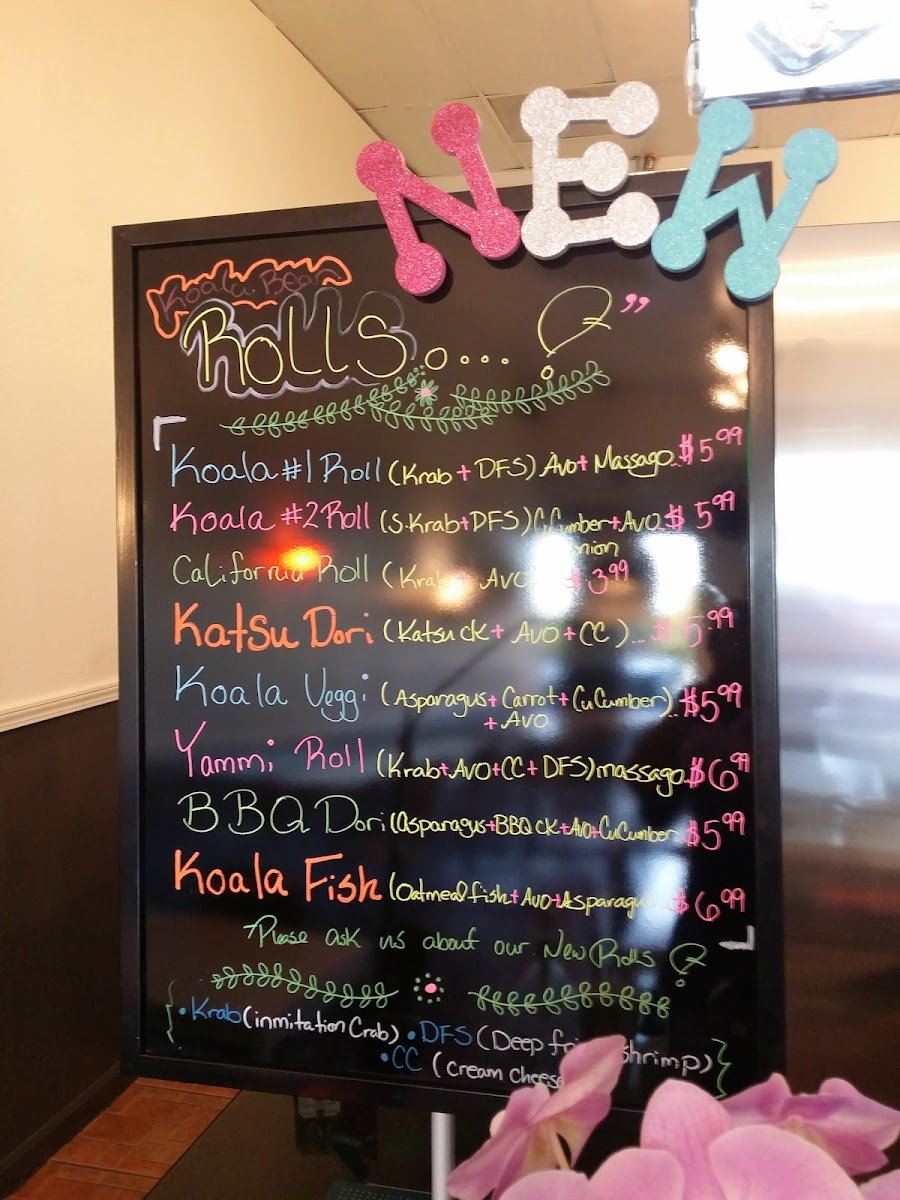 NEW
Koala Bear
Rolls....?"
Koala #1 Roll (Krab + DFS) Avo + Massago..$5.99
Koala #2 Roll (S.Krab+DFS) CuCumber+Avo $5.99
California Roll (Krab AVO $3.99
Katsu Dori (Katsu CK + AVO + CC)...$5.99
Koala Veggi (Asparagus + Carrot + CuCumber)..$5.99
+ AVO
Yammi Roll (Krab+AVO+CC+DFS) massago.$6.99
BBQ Dori (asparagus+BBQ CK+AVO+CuCumber $5.99
Koala Fish (Oatmeal fish + Avo+Asparagus $6.99
Please ask us about our New Rolls ?
{ • Krab (inmitation Crab) • DFS (Deep fried shrimp) }
• CC (cream cheese